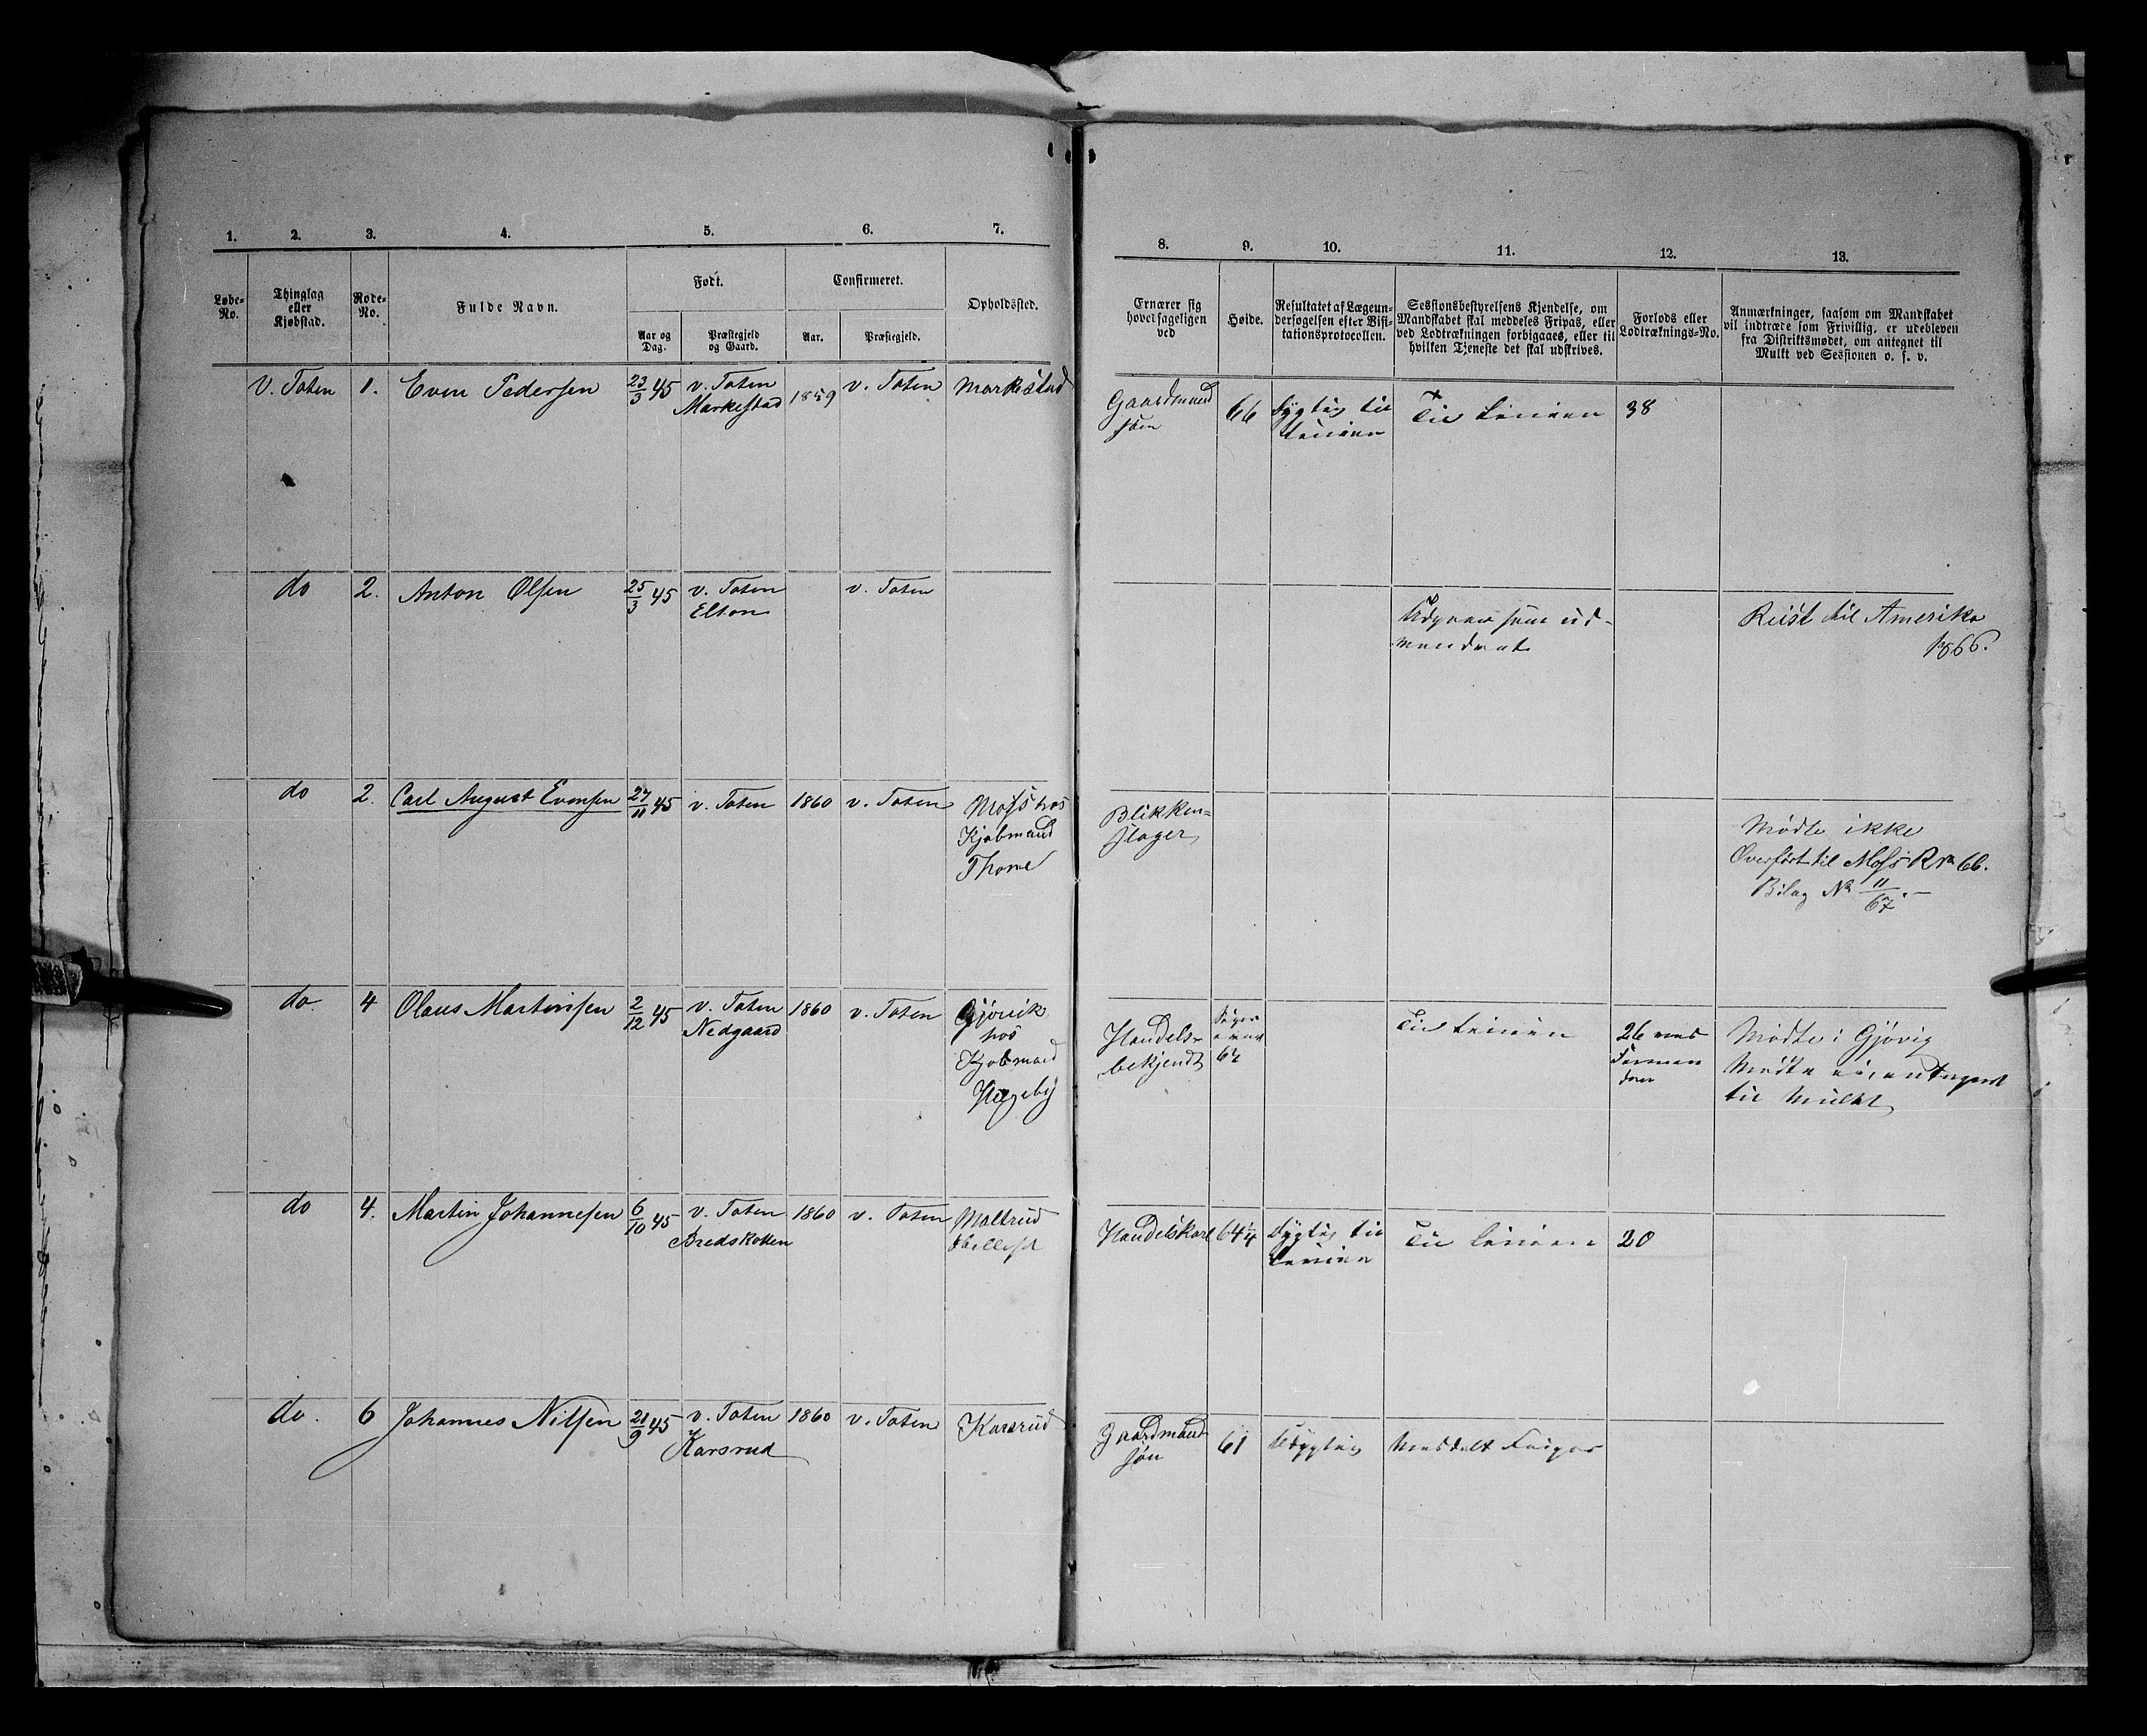 1. 2. 3. 4. 5. 6. 7.
Løbe-No. Thinglag eller Kjøbstad. Rode-No. Fulde Navn. Født. Confirmeret. Opholdssted.
Aar og Dag. Præstegjeld og Gaard. Aar. Præstegjeld.
V. Toten 1. Even Pedersen 23/3 45 v. Toten 1859 v. Toten Markestad
Markestad
do 2. Anton Olsen 25/3 45 v. Toten v. Toten
Elton
do 2. Carl August Evensen 27/11 45 v. Toten 1860 v. Toten Moss hos
Kjøbmand
Thorne
do 4 Olaus Martinsen 2/12 45 v. Toten 1860 v. Toten Gjøvik
Nedgaard hos
Kjøbmand
do 4. Martin Johannesen 6/10 45 v. Toten 1860 v. Toten Maltrud
Bredskotten
do. 6 Johannes Nilsen 21/9 45 v. Toten 1860 v. Toten Karsrud
Karsrud
8. 9. 10. 11. 12. 13.
Ernærer sig hovedsageligen ved
Høide.
Resultatet af Lægeundersøgelsen efter Visitationsprotocollen.
Sessionsbestyrelsens Kjendelse, om Mandskabet skal meddeles Fripas, eller ved Lodtrækningen forbigaaes, eller til hvilken Tjeneste det skal udskrives.
Forlods eller Lodtræknings-No.
Anmærkninger, saasom om Mandskabet vil indtræde som Frivillig, er udebleven fra Distriktsmødet, om antegnet til Mulkt ved Sessionen o. s. v.
Gaardmand 66 Dygtig til Til Linien 38
søn Linien
Udgaar som ud- Reist til Amerika
vandret 1866.
Blikken-
slager
Mødte ikke
Overført til Moss R No 66.
Bilag No 11/67.
Handels- Til Linien 26 Mødte i Gjøvig
betjendt 62 Mødte ei, antegnet
til Mulkt
Handelskarl 64 1/4 Dygtig til Til Linien 20
Linien
Gaardmand 61 Udygtig Meddelt Fripas
søn